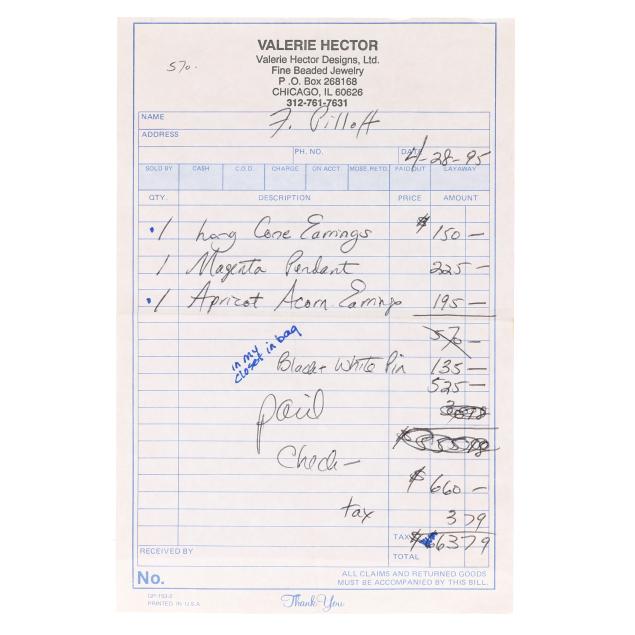 570.
VALERIE HECTOR
Valerie Hector Designs, Ltd.
Fine Beaded Jewelry
P.O. Box 268168
CHICAGO, IL 60626
312-761-7631
NAME F. Pilloff
ADDRESS
PH. NO. DATE 4-28-95
SOLD BY CASH C.O.D. CHARGE ON ACCT. MDSE. RETD. PAID OUT LAYAWAY
QTY. DESCRIPTION PRICE AMOUNT
1 Long Cone Earrings $150 —
1 Magenta Pendant 225 —
1 Apricot Acorn Earrings 195 —
570 —
in my
closet in bag
Black + White Pin 135 —
525 —
paid
Check —
$660 —
tax 3 79
TAX
$663 79
RECEIVED BY TOTAL
No. ALL CLAIMS AND RETURNED GOODS
MUST BE ACCOMPANIED BY THIS BILL.
GP-153-2
PRINTED IN U.S.A.
Thank You